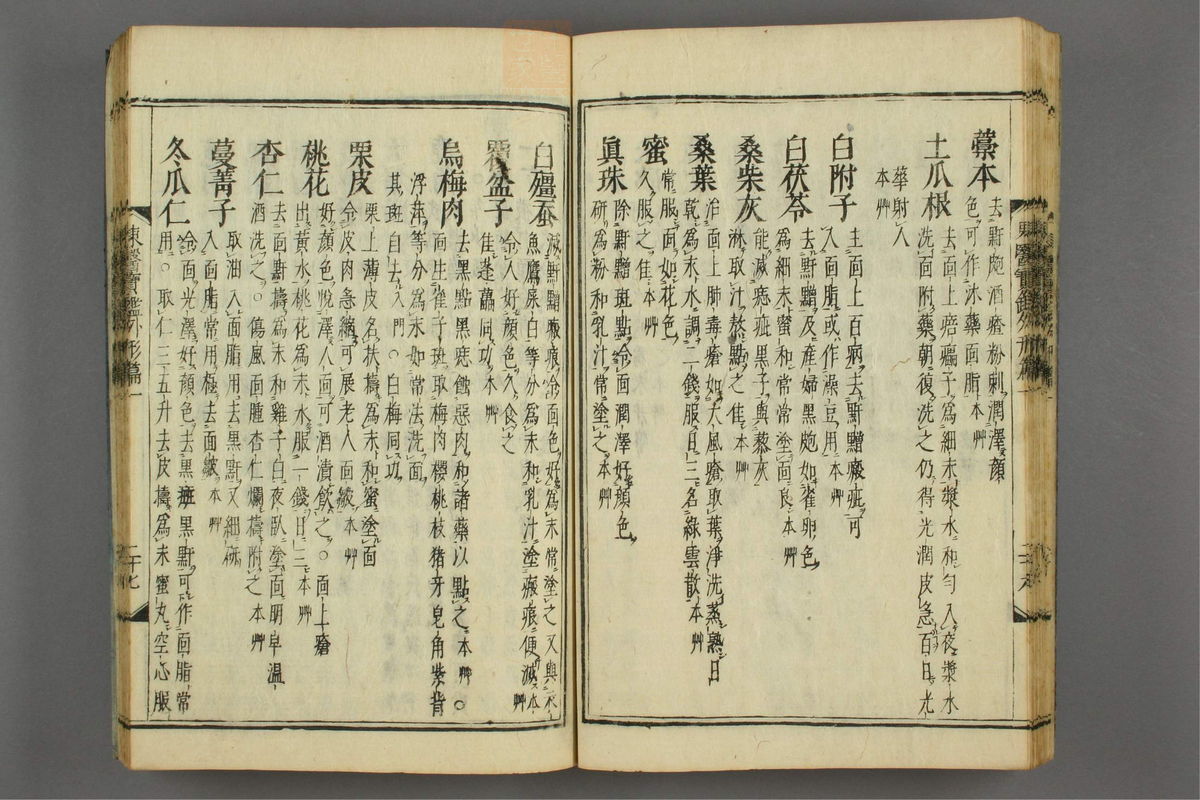 藁本 去䵟皰酒齄粉刺潤澤顏
色可作沐藥面脂本艸
土瓜根 去面上㾦㿔子爲細末漿水和勻入夜漿水
洗面附藥朝復洗之仍得光潤皮急百日光
華射人
本艸
白附子 主面上百病去䵟䵳瘢疵可
入面脂或作澡豆用本艸
白茯苓 去䵟䵳及產婦黑皰如雀卵色
爲細末蜜和常常塗面良本艸
桑柴灰 能滅痣疵黑子與藜灰
淋取汁熬點之佳本艸
桑葉 治面上肺毒瘡如大風瘡取葉淨洗蒸熟日
乾爲末水調二錢服日三名綠雲散本艸
蜜 常服面如花色
久服之佳本艸
眞珠 除䵟䵳斑點令面潤澤好顏色
研爲粉和乳汁常塗之本艸
白殭蚕 滅䵟䵳瘢痕令面色好爲末常塗之又與衣
魚鷹屎白等分爲末和乳汁塗瘢痕便滅本
艸
覆盆子 令人好顏色久食之
佳蓬藟同功本艸
烏梅肉 去黑點黑痣蝕惡肉和諸藥以點之本艸○
面生雀子斑取梅肉櫻桃枝猪牙皂角紫背
浮萍等分爲末如常法洗面
其斑自去入門○白梅同功
栗皮 栗上薄皮名扶擣爲末和蜜塗面
令皮肉急縮可展老人面皺本艸
桃花 好顏色悅澤人面可酒漬飮之○面上瘡
出黃水桃花爲末水服一錢日三本艸
杏仁 去面䵟擣爲末和雞子白夜臥塗面明早溫
酒洗之○傷風面腫杏仁爛擣附之本艸
蔓菁子 取油入面脂用去黑䵟又細硏
入面脂常用極去面皺本艸
冬瓜仁 令面光澤好顏色去黑䵟可作面脂常
用○取仁三五升去皮擣爲末蜜丸空心服
東醫寶鑑外形篇一
二十七